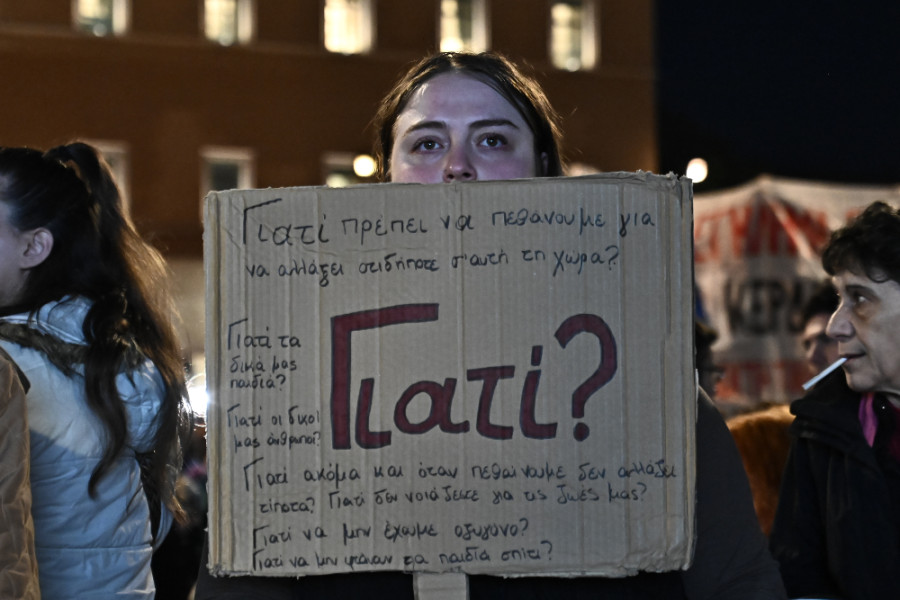 Γιατί πρέπει να πεθάνουμε για
να αλλάξει οτιδήποτε σ'αυτή τη χώρα?
Γιατί τα
δικά μας
παιδιά?
Γιατί?
Γιατί οι δικοί
μας άνθρωποι?
Γιατί ακόμα και όταν πεθαίνουμε δεν αλλάζει
τίποτα? Γιατί δεν νοιάζεστε για τις ζωές μας?
Γιατί να μην έχουμε οξυγόνο?
Γιατί να μην φτάσαν τα παιδιά σπίτι?